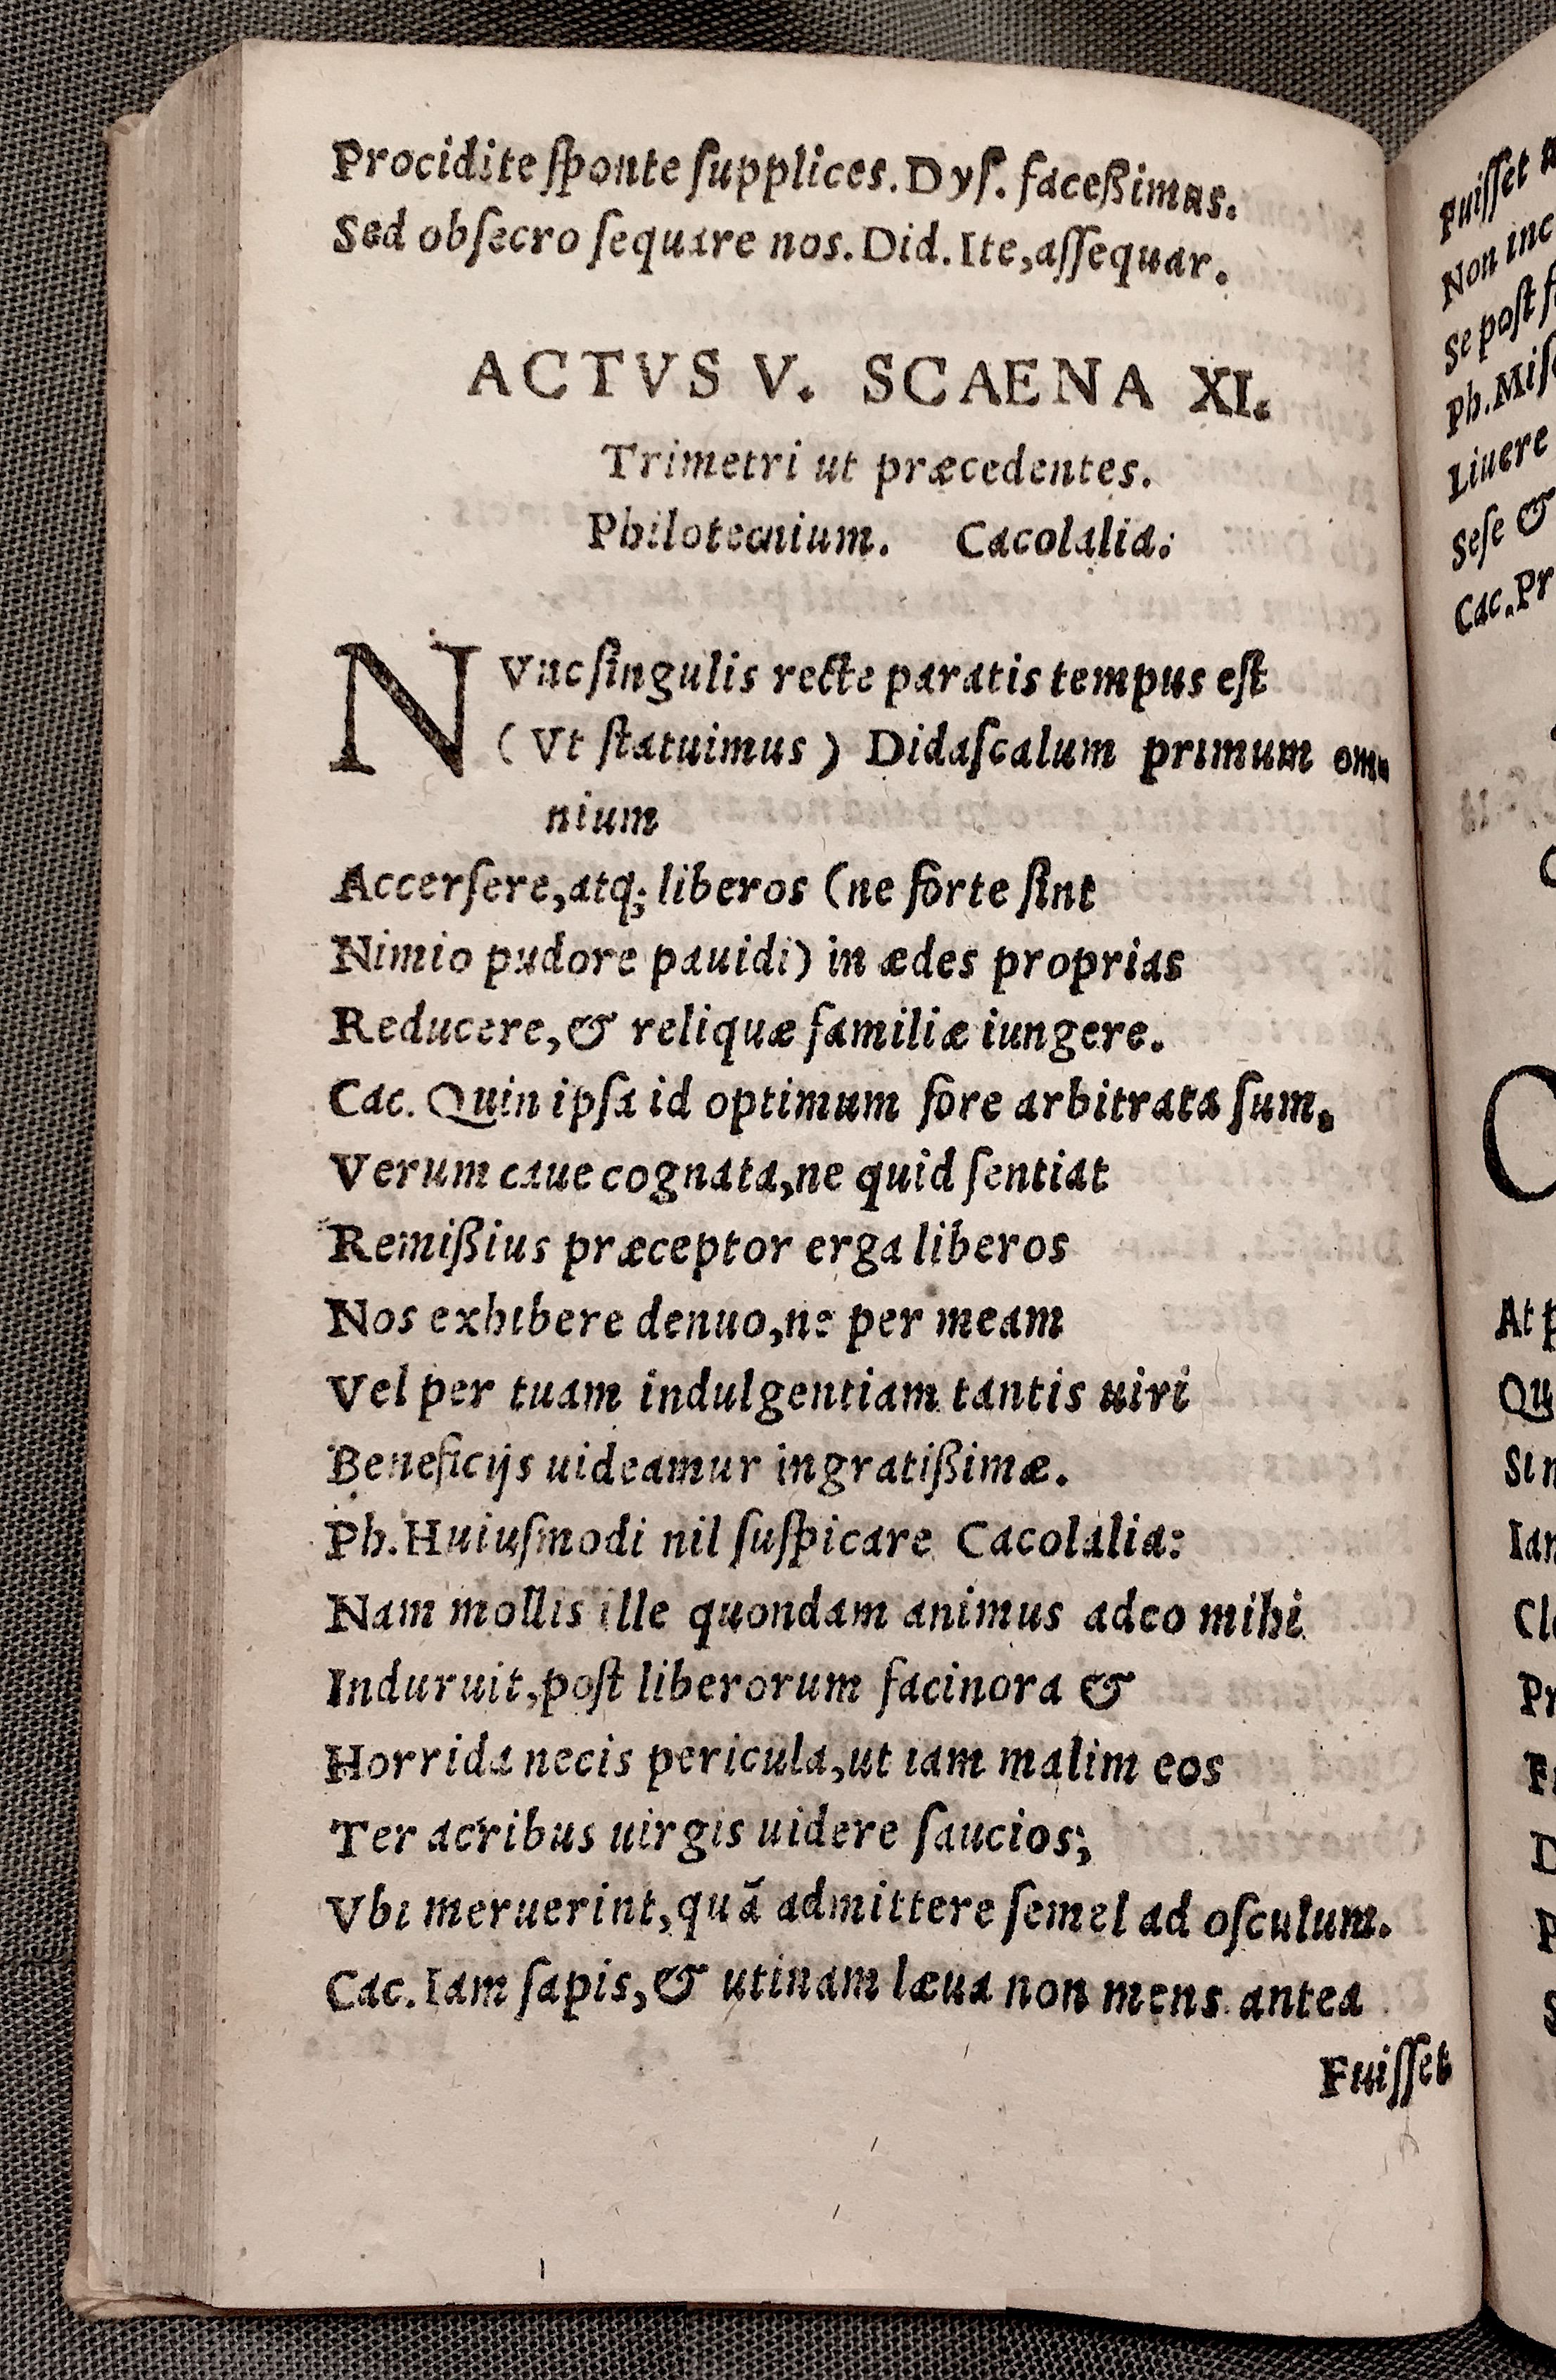 Prociditeſponte ſupplices. Dyſ. faceßimus.
Sed obſecro ſequare nos. Did. Ite, aſſequar.
ACTVS V. SCAENA XI.
Trimetri ut præcedentes.
Philotecnium. Cacolalia:
NVnc ſingulis recte paratis tempus eſt
(Vt ſtatuimus) Didaſcalum primum om-
nium
Accerſere, atq; liberos (ne forte ſint
Nimio pudore pauidi) in ædes proprias
Reducere, & reliquæ familiæ iungere.
Cac. Quin ipſa id optimum fore arbitrata ſum.
Verum caue cognata, ne quid ſentiat
Remißius præceptor erga liberos
Nos exhibere denuo, ne per meam
Vel per tuam indulgentiam tantis uiri
Beneficijs uideamur ingratißimæ.
Ph. Huiuſmodi nil ſuſpicare Cacolalia:
Nam mollis ille quondam animus adeo mihi
Induruit, poſt liberorum facinora &
Horrida necis pericula, ut iam malim eos
Ter acribus uirgis uidere ſaucios;
Vbi meruerint, quã admittere ſemel ad oſculum.
Cac. Iam ſapis, & utinam læua non mens antea
Fuiſſet
Fuiſſet
Non
Se poſt
Ph.
Liuere
Seſe &
Cac. Pr
C
At
Qu